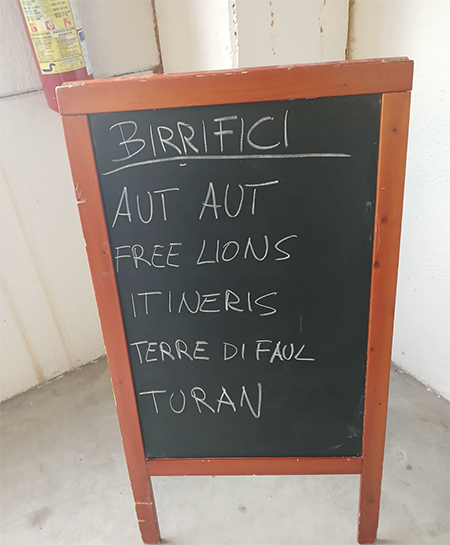 BIRRIFICI
AUT AUT
FREE LIONS
ITINERIS
TERRE DI FAUL
TURAN